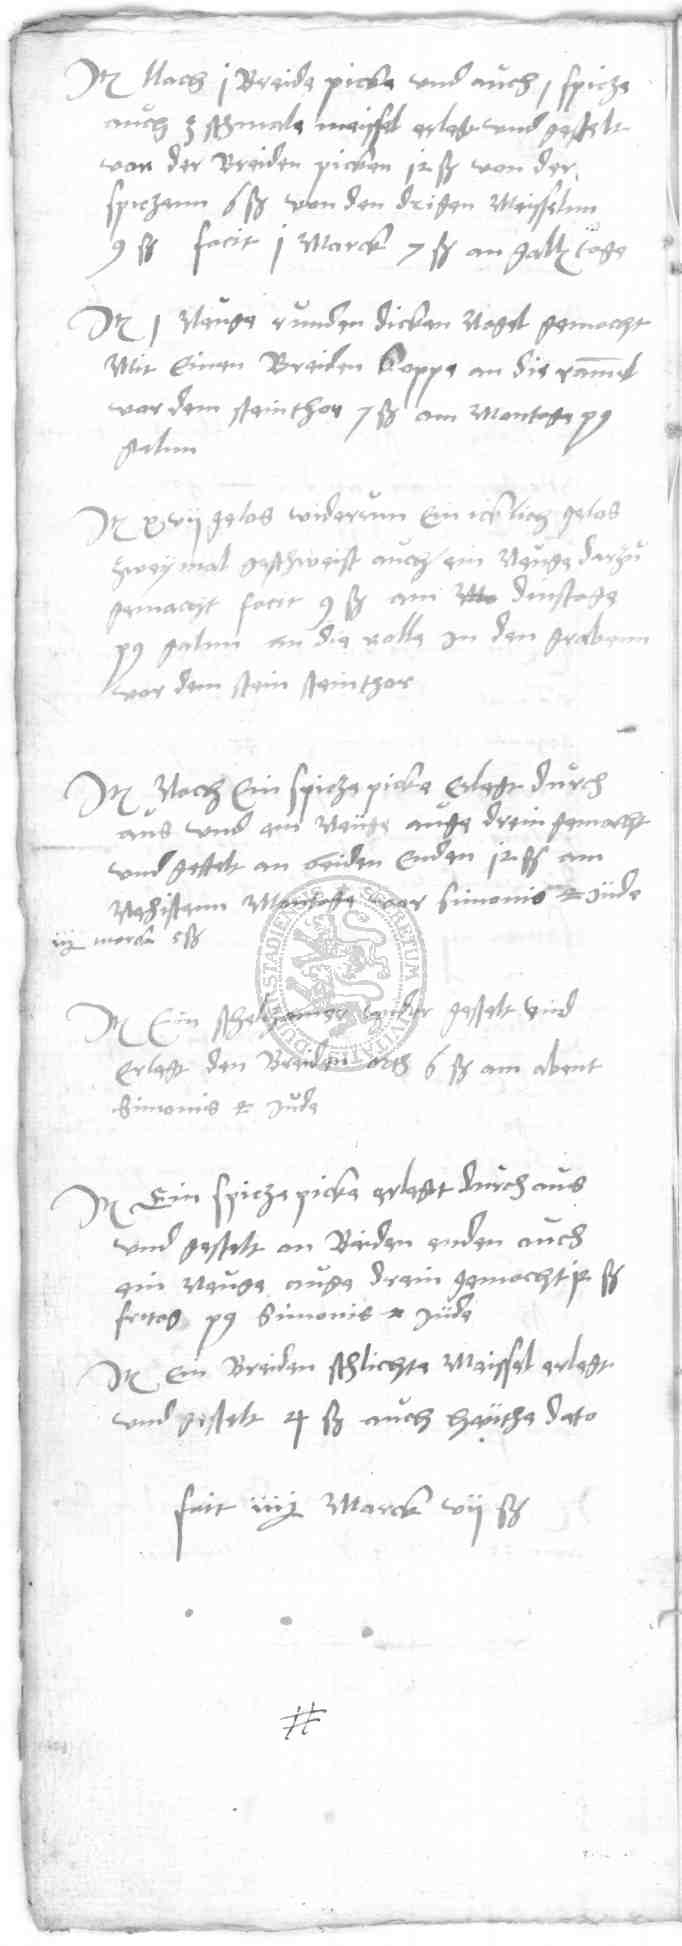 It Noch j Breide picke vnd auch j spicze
auch 3 schmale meissel erlegt vnd gestelt
von der Breiden picken 12 ß von der
spiczenn 6 ß von den drigen Meisselnn
9 ß facit j Marck 7 ß an galli tage
It j Neuge runden dicken Nagel gemacht
Mit Einen Breiden koppe an die ramel
vor dem steinthor 7 ß am Montage p9
gallun
It xvij gelos widerum Ein icklich gelos
zweymal geschweist auch ein Neuge darzu
gemacht facit 9 ß am dinstage
p9 gallun an die rolle In den grabenn
vor dem stein steinthor
It Noch Ein spicze picke Erlegt durch
aus vnd ein Neuge auge drein gemacht
vnd gestelt an beiden Enden 12 ß am
Nehistenn Montage vor simonis et Jude
iij marck 5 ß
SECRETUM CIVITATIS
It Ein wider gestelt vnd
Erlegt den Breiden orth 6 ß am abent
Simonis et Jude
It Ein spicze picke erlegt durch aus
vnd gestelt an Beiden enden auch
ein Neuge auge drein gemacht 12 ß
fritag p9 Simonis et Jude
It Ein Breiden schlichte Meissel erlegt
vnd gestelt 4 ß auch heuthe dato
fcit iiij Marck vij ß